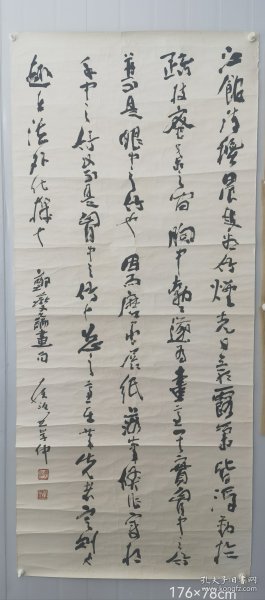 江館清秋晨起看竹煙光日影露氣皆浮動於
疏枝密葉之間胸中勃勃遂有畫意其實胸中之竹
並不是眼中之竹也因而磨墨展紙落筆倏作變相
手中之竹又不是胸中之竹也總之意在筆先者定則也
趣在法外化機也
鄭燮論畫句
176×78cm
孔夫子旧书网